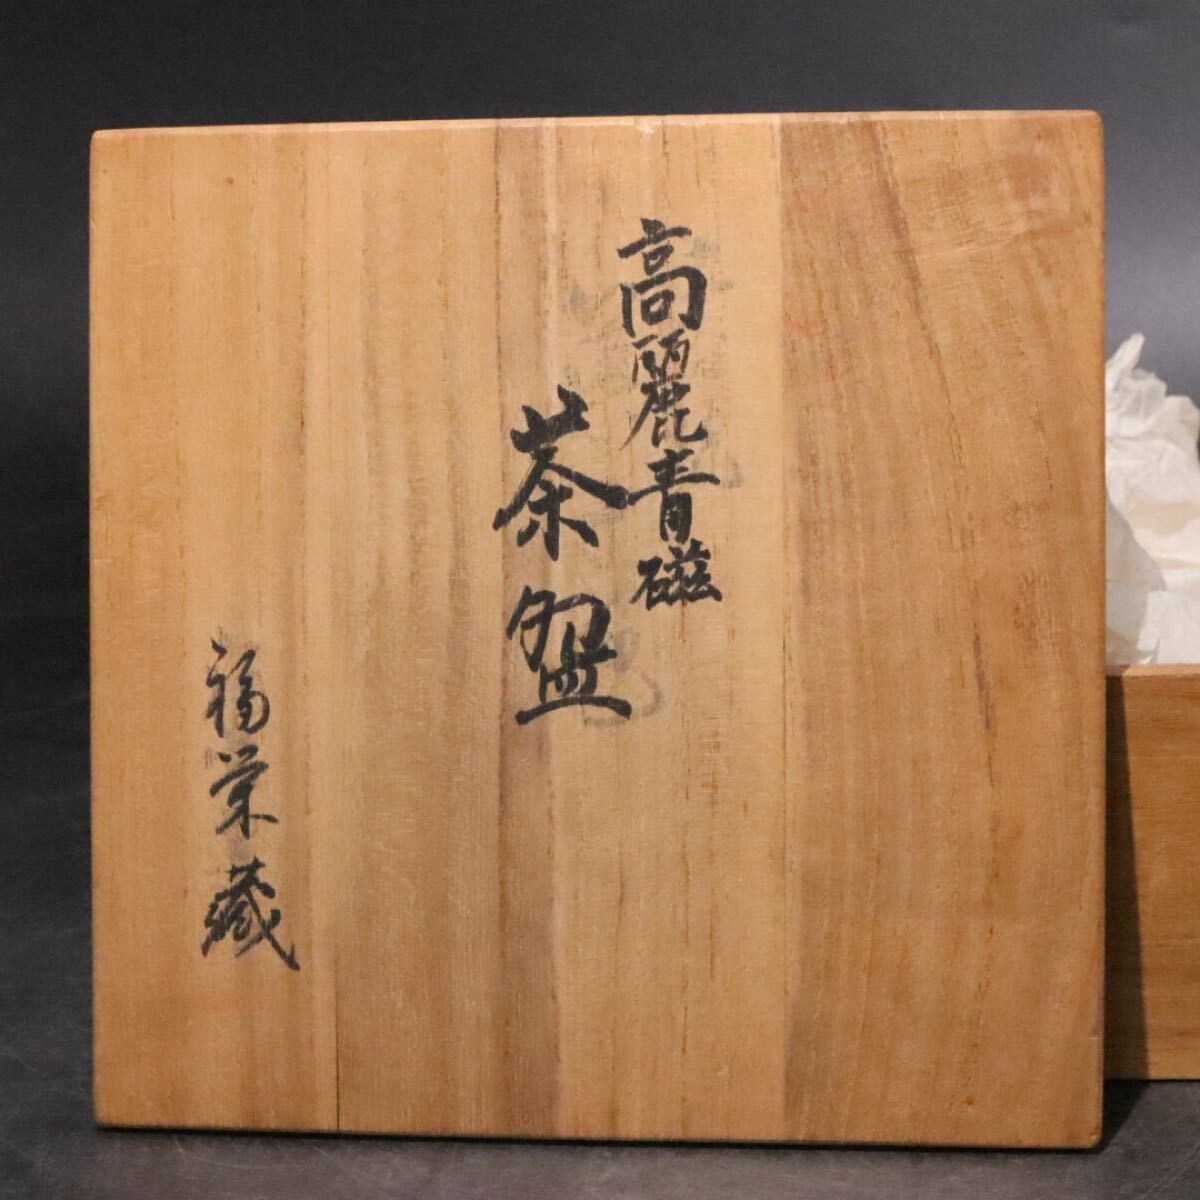 高麗青磁
茶盌
福栄蔵